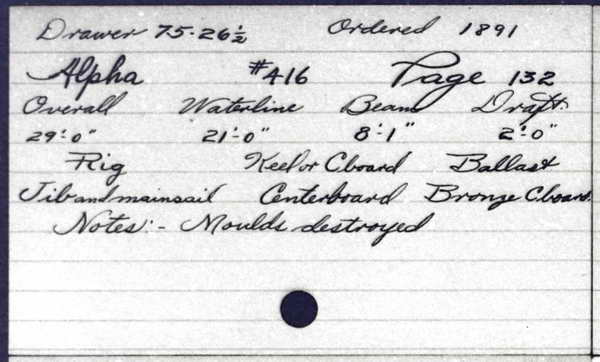 Drawer 75-26½ Ordered 1891
Alpha #416 Page 132
Overall Waterline Beam Draft
29'-0" 21'-0" 8'-1" 2'-0"
Rig Keel or Cboard Ballast
Jib and mainsail Centerboard Bronze Cboard.
Notes:- Moulds destroyed